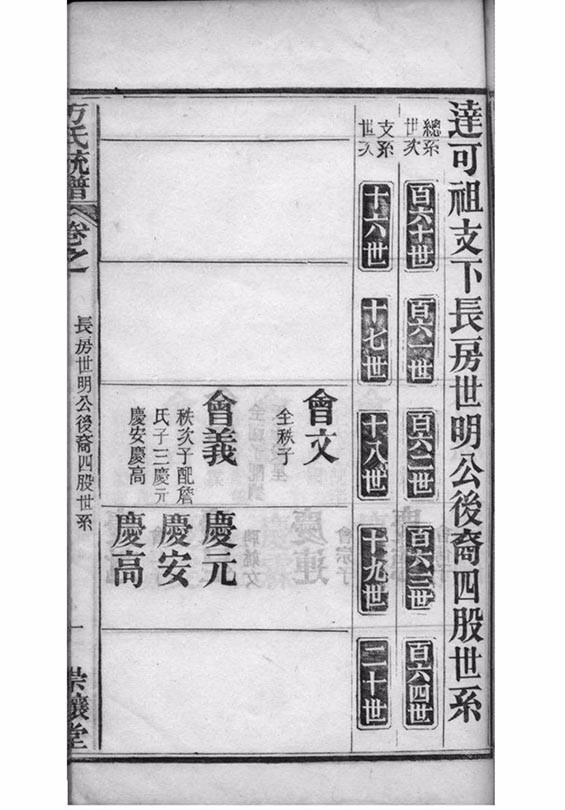 達可祖支下長房世明公後裔四股世系
總系世次
百六十世
百六一世
百六二世
百六三世
百六四世
支系世次
十六世
十七世
十八世
十九世
二十世
會文
全秩子
會義
秩次子配詹
氏子三慶元
慶安慶高
慶元
慶安
慶高
方氏統譜
卷之
長房世明公後裔四股世系
一